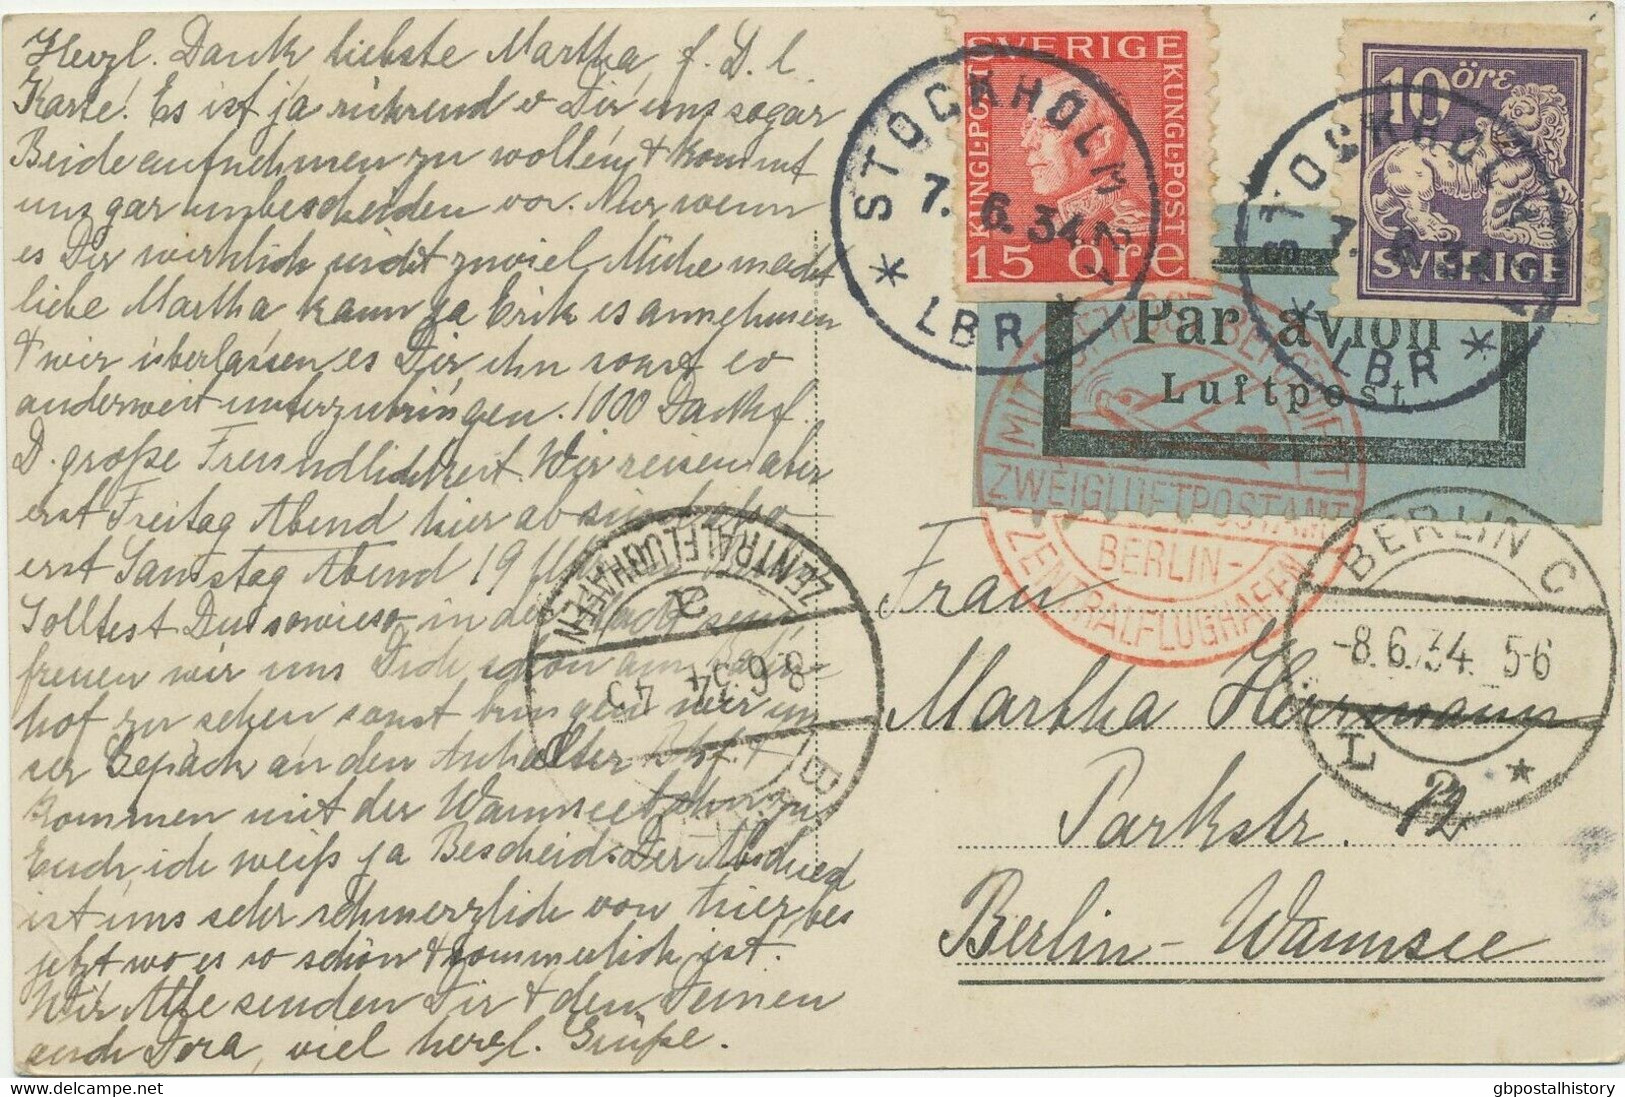 Herzl. Dank liebste Martha f. D. l.
Karte! Es ist ja rührend v Dir uns sogar
Beide aufnehmen zu wollen & kommt
uns gar unbescheiden vor. Nur wenn
es Dir wirklich nicht zuviel Mühe macht
liebe Martha kann ja Erik es annehmen
& wir überlassen es Dir ihn sonst ev
anderweit unterzubringen. 1000 Dank f.
D. große Freundlichkeit. Wir reisen aber
erst Freitag Abend hier ab sind also
erst Samstag Abend 19
Solltest Du sowieso in der Stadt sein
freuen wir uns Dich schon am Bahn-
hof zu sehen sonst bringen wir un
ser Gepäck an den Anhalter Bhf. &
kommen mit der Wannseebahn zu
Euch, ich weiß ja Bescheid. Der Abschied
ist uns sehr schmerzlich von hier, bes
jetzt wo es so schön & sommerlich ist.
Wir Alle senden Dir & den Deinen
auch Dora, viel herzl. Grüße.
SVERIGE
KUNGL·POST
KUNGL·POST
15 öre
10 öre
SVERIGE
STOCKHOLM 21
7. 6. 34
* LBR *
STOCKHOLM 21
7. 6. 34
* LBR *
Par avion
Luftpost
MIT LUFTPOST BEFÖRDERT
ZWEIGLUFTPOSTAMT
BERLIN-
ZENTRALFLUGHAFEN
BERLIN C
-8.6.34. 5-6
L 2 *
ZENTRALFLUGHAFEN
-8.6.34
Frau
Martha Herrmann
Parkstr. 12
Berlin-Wannsee
gbpostalhistory